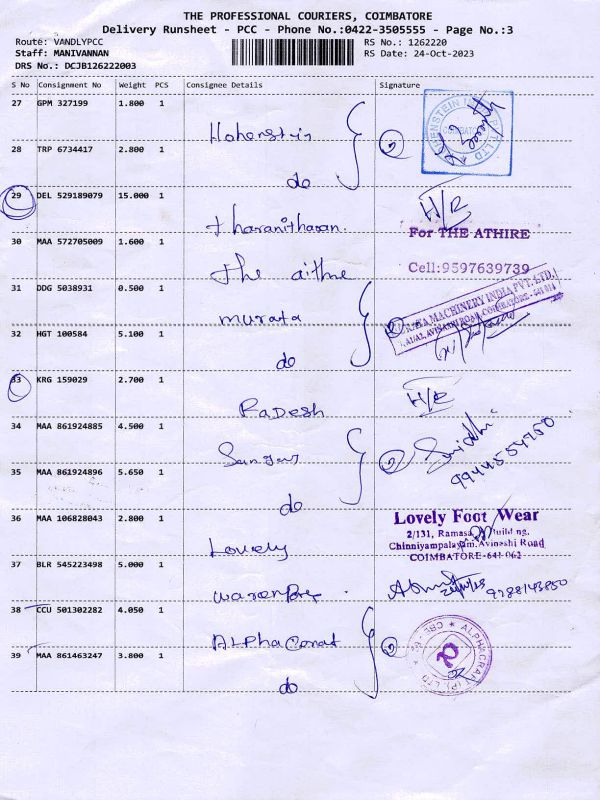 THE PROFESSIONAL COURIERS, COIMBATORE
Delivery Runsheet - PCC - Phone No.:0422-3505555 - Page No.:3
Route: VANDLYPCC
RS No.: 1262220
Staff: MANIVANNAN
RS Date: 24-Oct-2023
DRS No.: DCJB126222003
S No Consignment No Weight PCS Consignee Details Signature
27 GPM 327199 1.800 1
Hohenstein
2
28 TRP 6734417 2.800 1
do
29 DEL 529189079 15.000 1
tharanitharan.
H/R
For THE ATHIRE
30 MAA 572705009 1.600 1
the aithre
Cell:9597639739
31 DDG 5038931 0.500 1
murata
MACHINERY INDIA PVT. LTD.,
32 HGT 100584 5.100 1
do
33 KRG 159029 2.700 1
Radesh
H/R
34 MAA 861924885 4.500 1
2
9944554950
35 MAA 861924896 5.650 1
do
36 MAA 106828043 2.800 1
Lovely
Lovely Foot Wear
2/131, Ramasa Building,
Chinniyampalayam, Avinashi Road
COIMBATORE-641 062
37 BLR 545223498 5.000 1
9788143850
38 CCU 501302282 4.050 1
Alphacraft
2
39 MAA 861463247 3.800 1
do